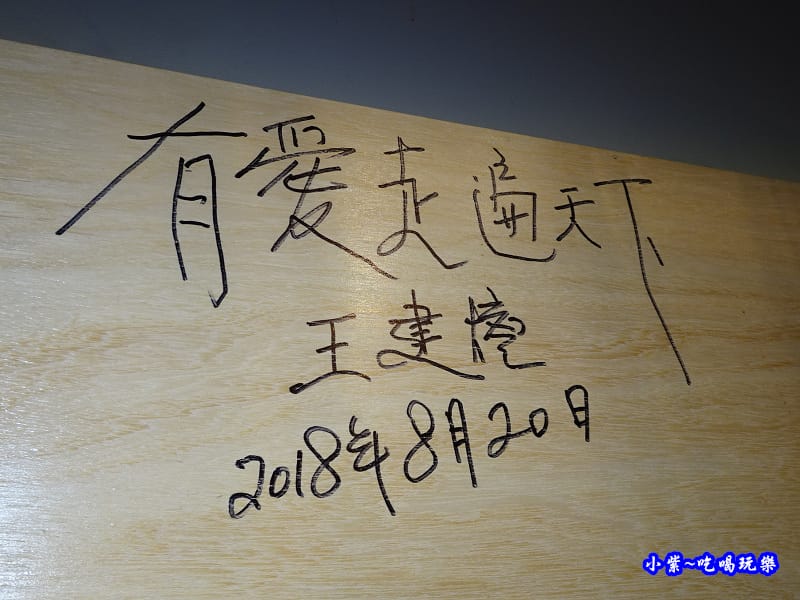 有愛走遍天下
王建
2018年8月20日
小紫~吃喝玩樂